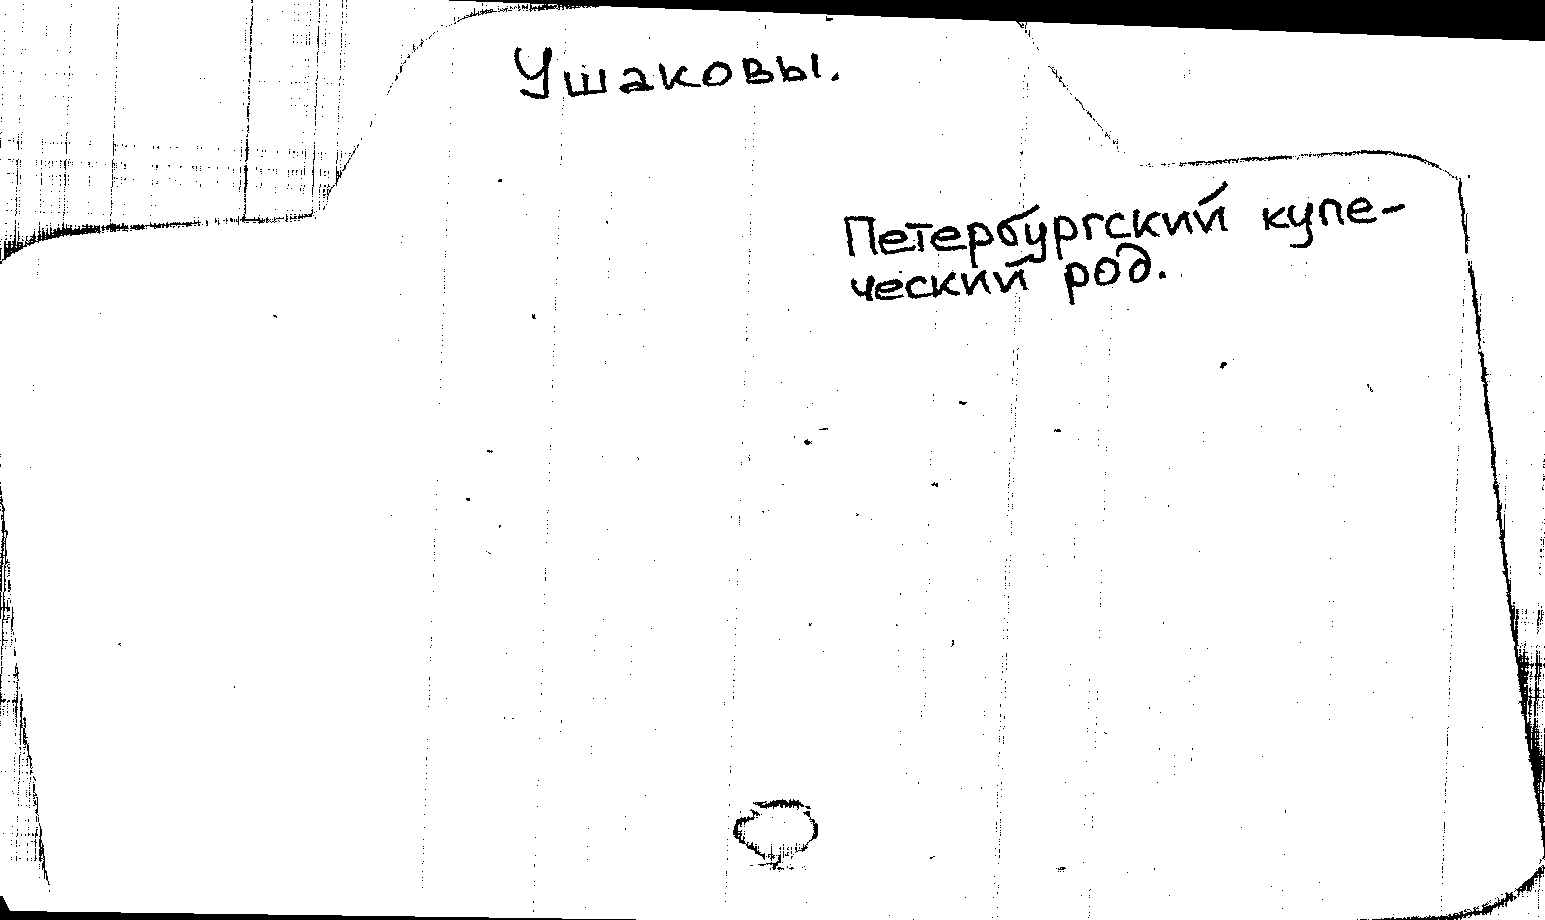 Ушаковы.
Петербургский купе-
ческий род.